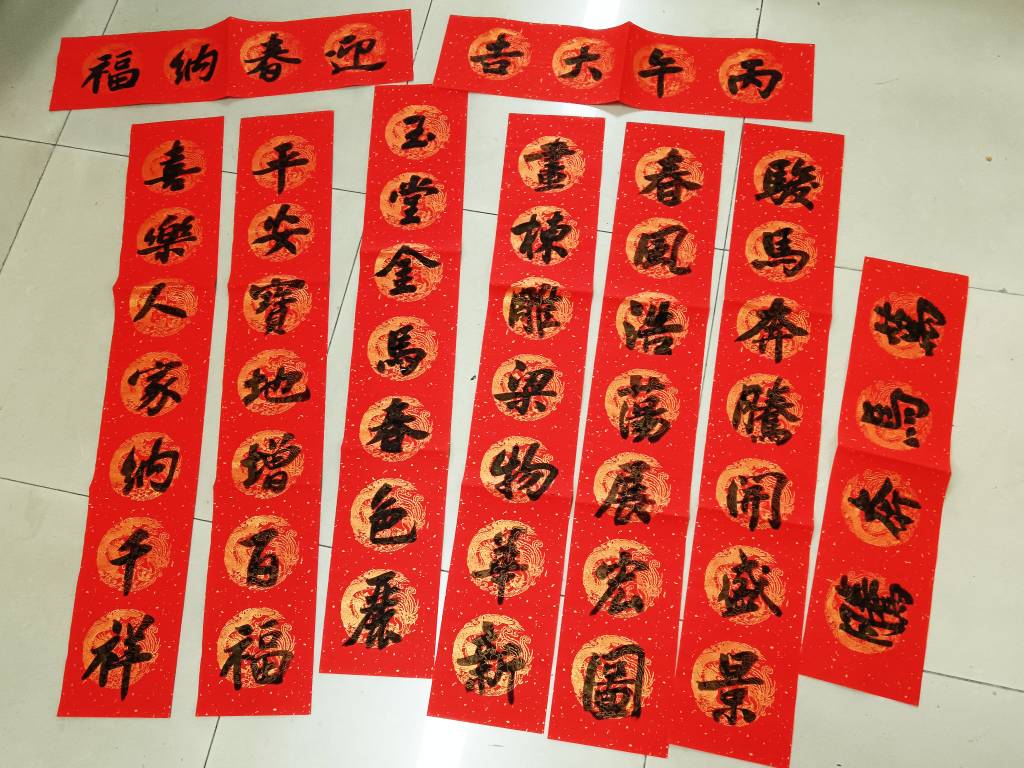 丙午大吉
迎春纳福
萬馬奔騰
駿馬奔騰開盛景
春風浩蕩展宏圖
畫棟雕梁物華新
玉堂金馬春色麗
平安寶地增百福
喜樂人家纳千祥